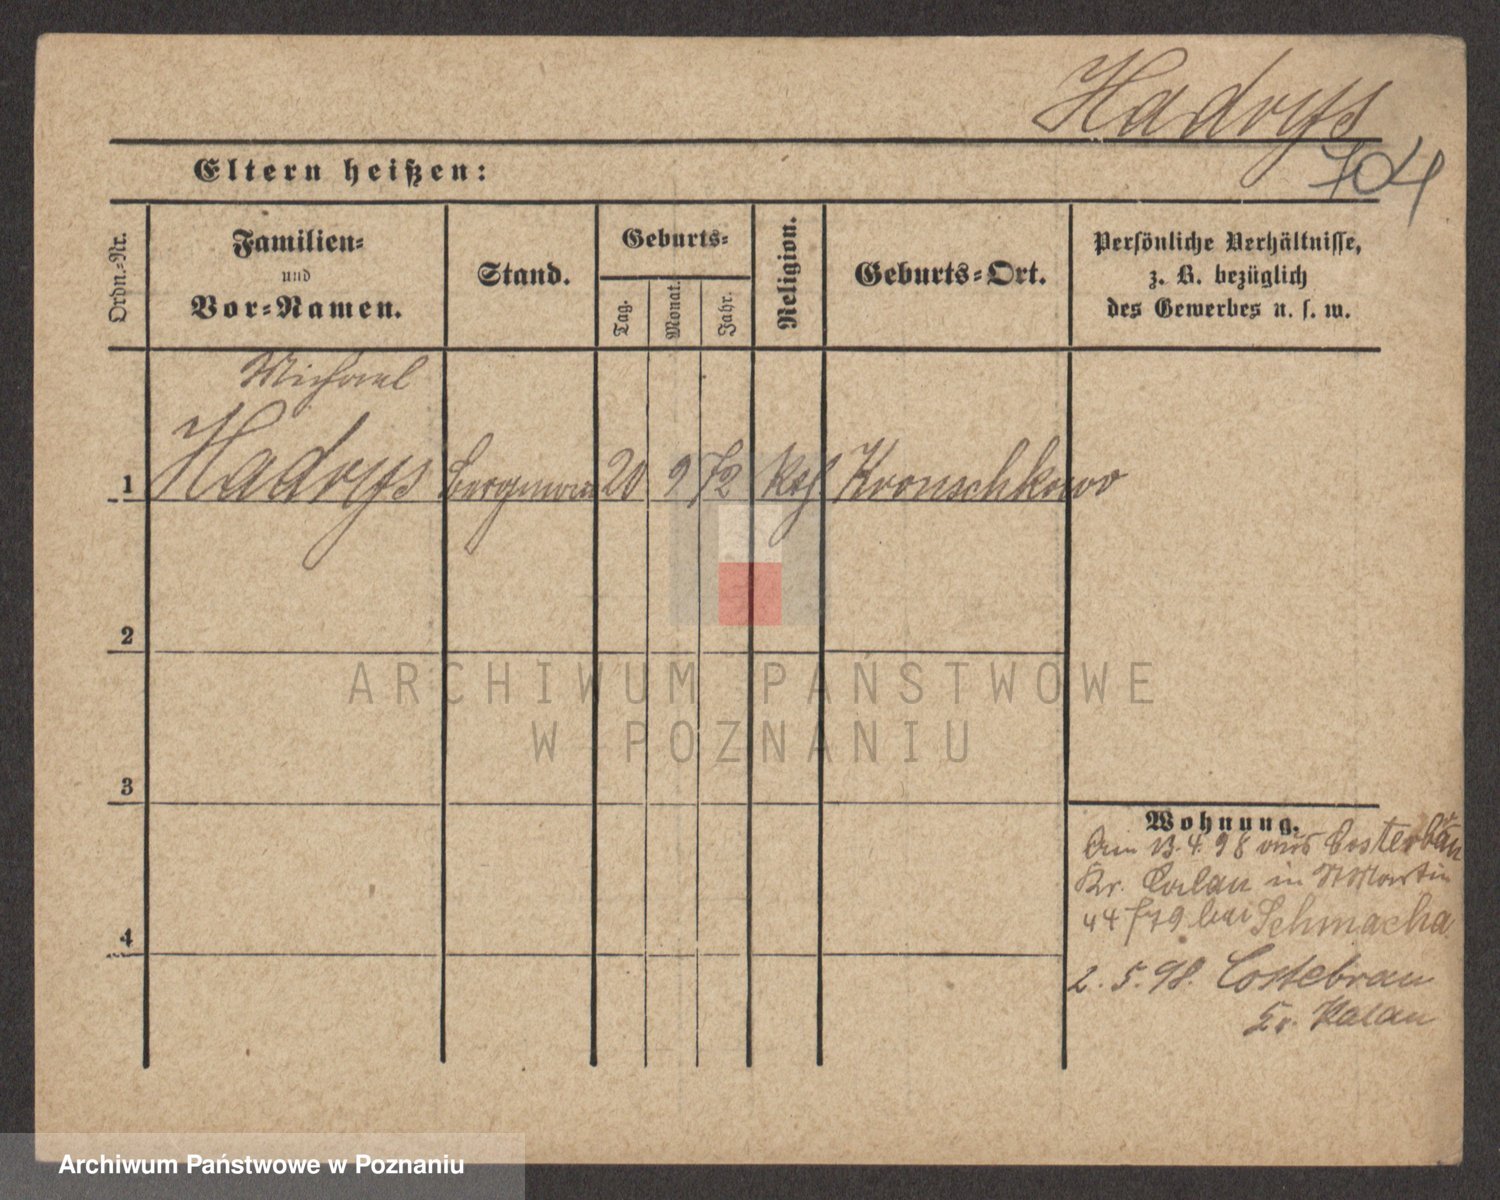 Hadrys
704
Eltern heißen:
Ordn.-Nr.
Familien-
und
Vor-Namen.
Stand.
Geburts-
Tag.
Monat.
Jahr.
Religion.
Geburts-Ort.
Persönliche Verhältnisse,
z. B. bezüglich
des Gewerbes u. s. w.
Michael
1 Hadrys Bergmann 20 9 72 Kth Kronschkowo
2
3
4
Wohnung.
Am 13.4.98 aus Costerbrau
Kr. Calau in St Martin
44 bei Schmacha
2.5.98. Costebrau
Kr. Kalau
ARCHIWUM PAŃSTWOWE
W POZNANIU
Archiwum Państwowe w Poznaniu